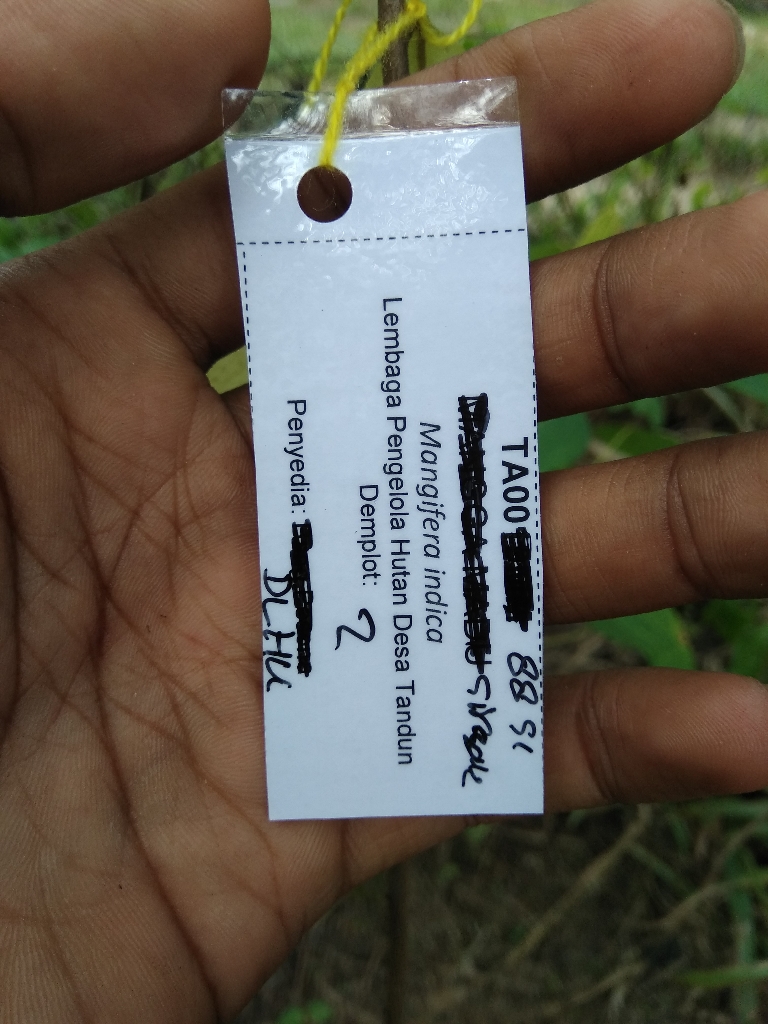 TA00 88 SI
Sirsak
Mangifera indica
Lembaga Pengelola Hutan Desa Tandun
Demplot: 2
Penyedia:
DLHK